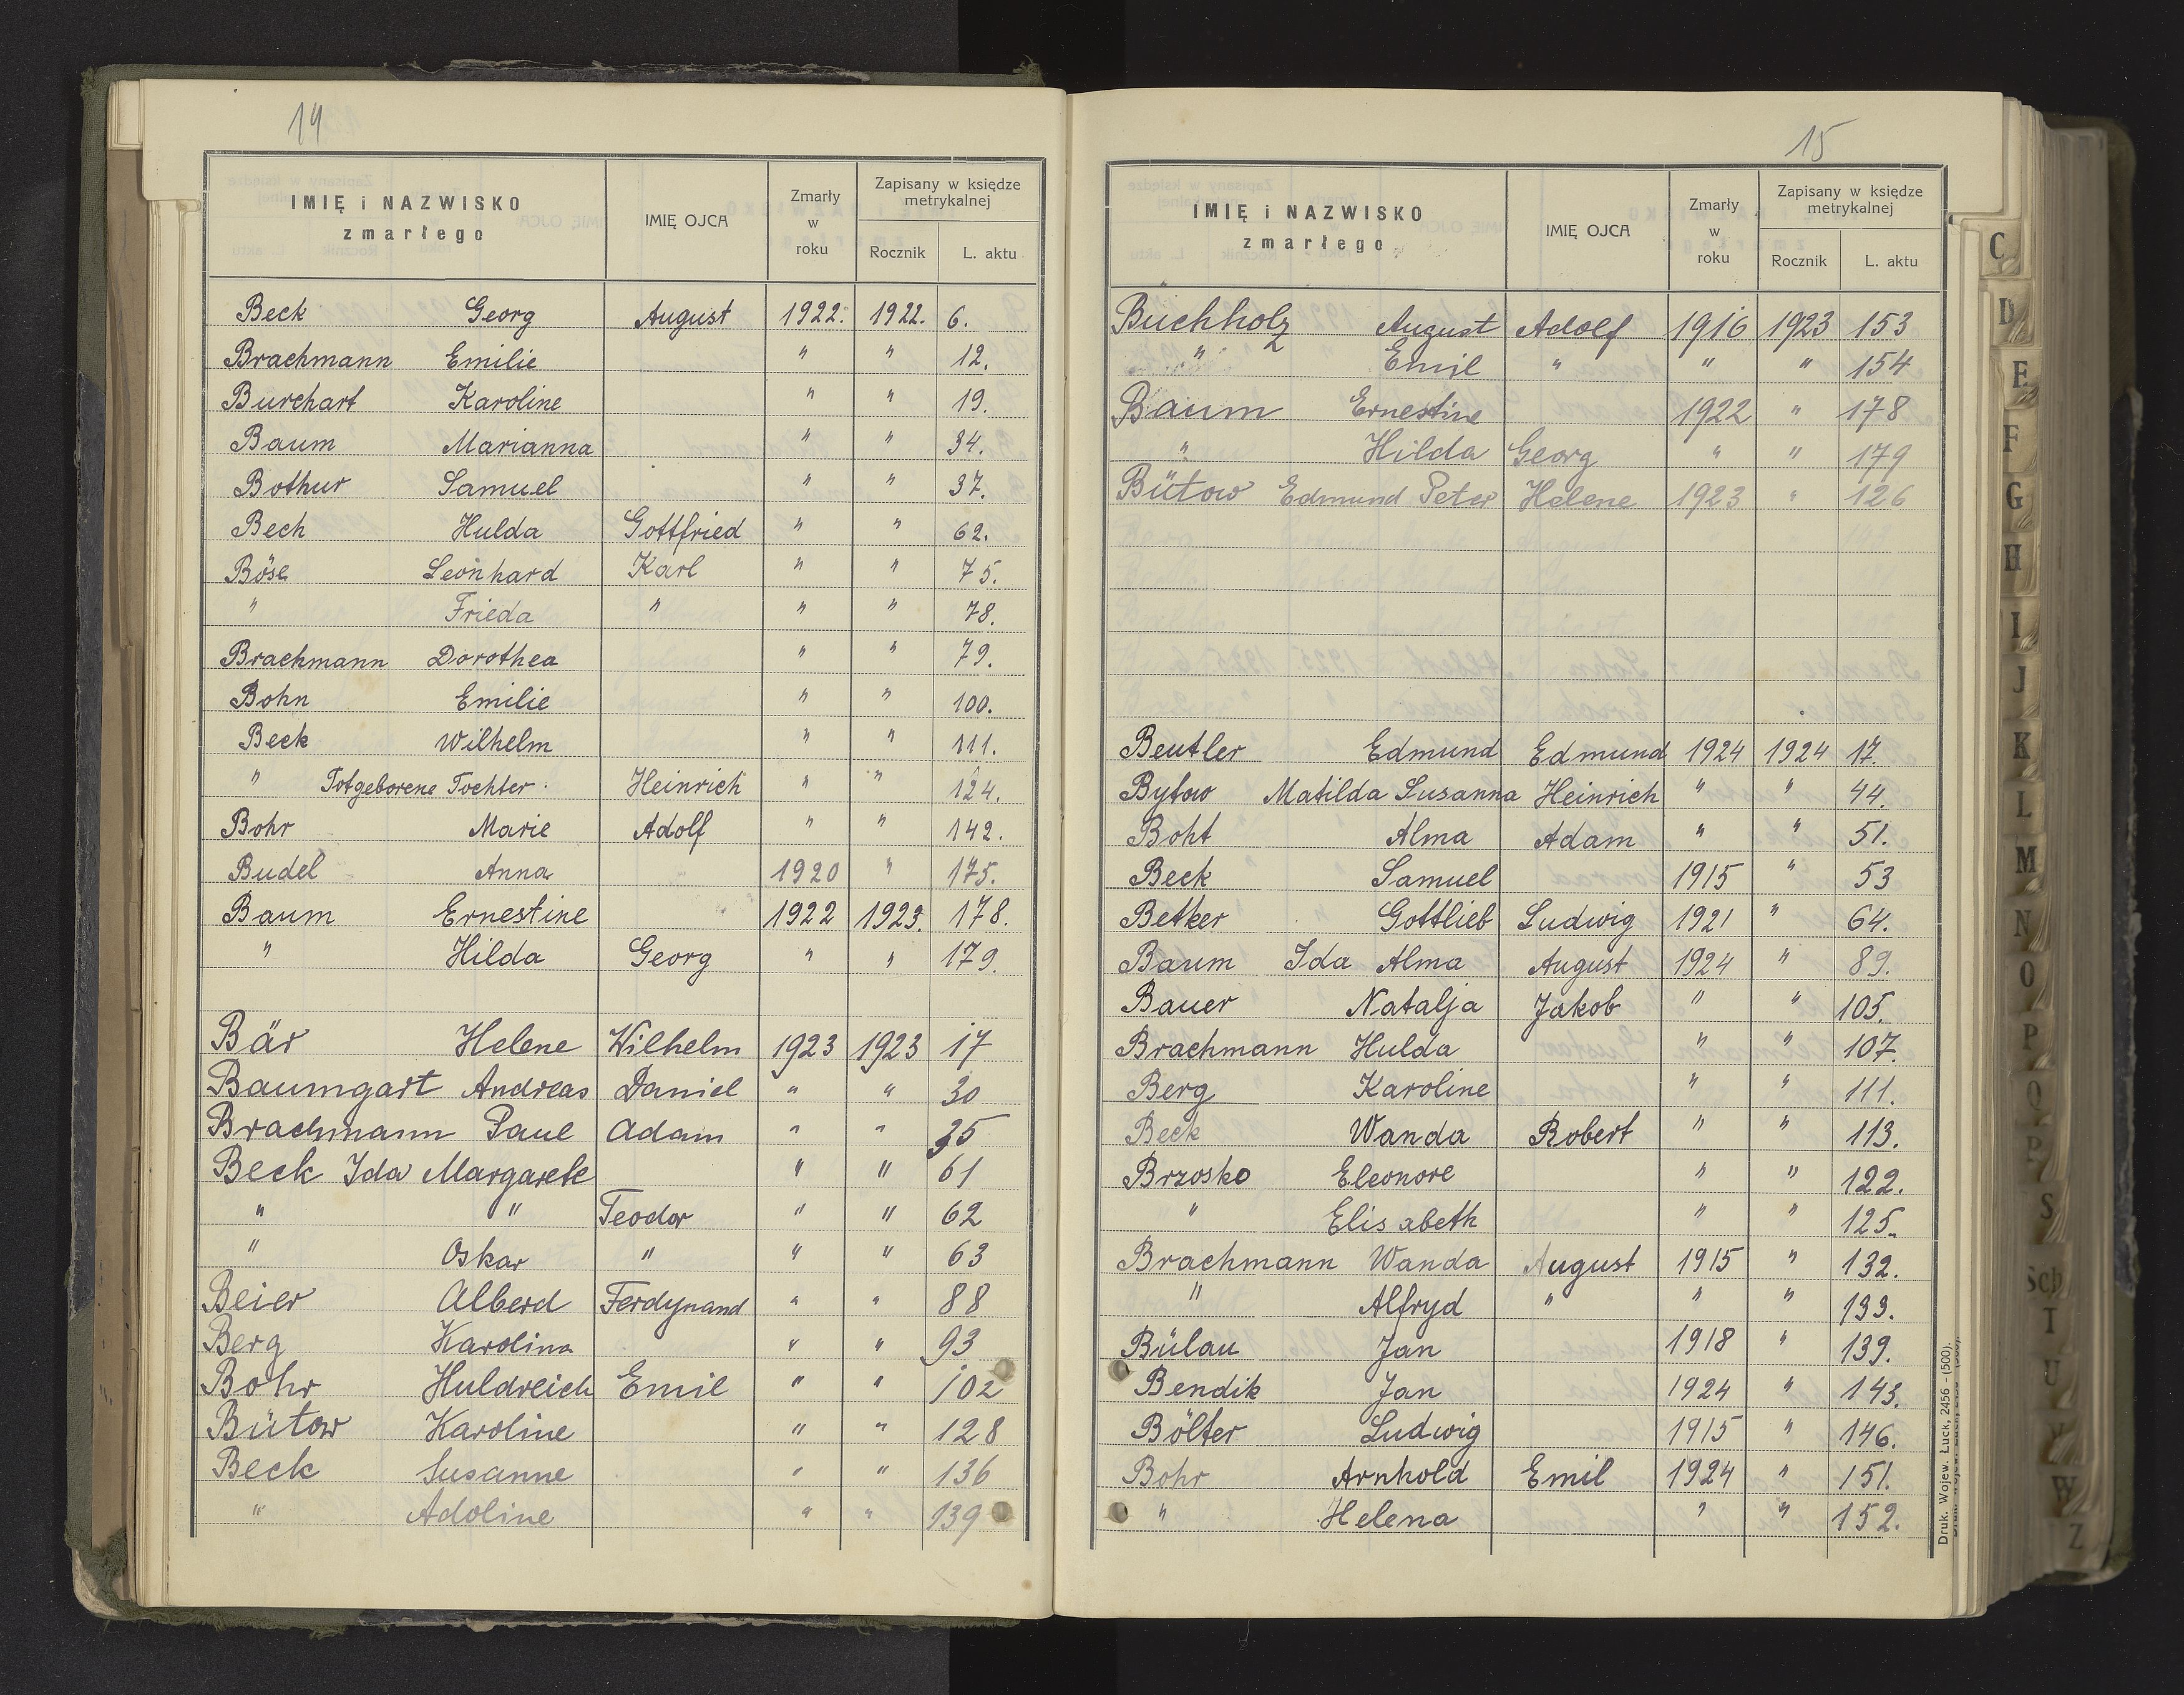 14
IMIĘ i NAZWISKO zmarłego IMIĘ OJCA Zmarły w roku Zapisany w księdze metrykalnej
Rocznik L. aktu
Beck Georg August 1922. 1922. 6.
Brachmann Emilie " " 12.
Burchart Karoline " " 19.
Baum Marianna " " 34.
Bothur Samuel " " 37.
Bech Hulda Gottfried " " 62.
Böse Leonhard Karl " " 75.
" Frieda " " " 78.
Brachmann Dorothea " " 79.
Bohn Emilie " " 100.
Beck Wilhelm " " 111.
" Totgeborene Tochter. Heinrich " " 124.
Bohr Marie Adolf " " 142.
Budel Anna 1920 " 175.
Baum Ernestine 1922 1923. 178.
" Hilda Georg " " 179.
Bär Helene Wilhelm 1923 1923 17
Baumgart Andreas Daniel " " 30
Brachmann Paul Adam " " 35
Beck Ida Margarete " " 61
" " Teodor " " 62
" Oskar " " " 63
Beier Alberd Ferdynand " " 88
Berg Karolina " " 93
Bohr Huldreich Emil " " 102
Bütow Karoline " " 128
Beck Susanne " " 136
" Adoline " " 139
15
IMIĘ i NAZWISKO zmarłego IMIĘ OJCA Zmarły w roku Zapisany w księdze metrykalnej
Rocznik L. aktu
Buchholz August Adolf 1916 1923 153
" Emil " " " 154
Baum Ernestine 1922 " 178
" Hilda Georg " " 179
Bütow Edmund Peter Helene 1923 " 126
Beutler Edmund Edmund 1924 1924 17.
Bytow Matilda Susanna Heinrich " " 44.
Boht Alma Adam " " 51.
Beck Samuel 1915 " 53
Betker Gottlieb Ludwig 1921 " 64.
Baum Ida Alma August 1924 " 89.
Bauer Natalja Jakob " " 105.
Brachmann Hulda " " 107.
Berg Karoline " " 111.
Beck Wanda Robert " " 113.
Brzosko Eleonore " " 122.
" Elisabeth " " 125.
Brachmann Wanda August 1915 " 132.
" Alfryd " " " 133.
Bülau Jan 1918 " 139.
Bendik Jan 1924 " 143.
Bölter Ludwig 1915 " 146.
Bohr Arnhold Emil 1924 " 151.
" Helena " " 152.
Druk. Wojew. Łuck, 2456 - (500).
C
D
E
F
G
H
I
J
K
L
M
N
O
P
Q
R
S
Sch
T
U
V
W
Z